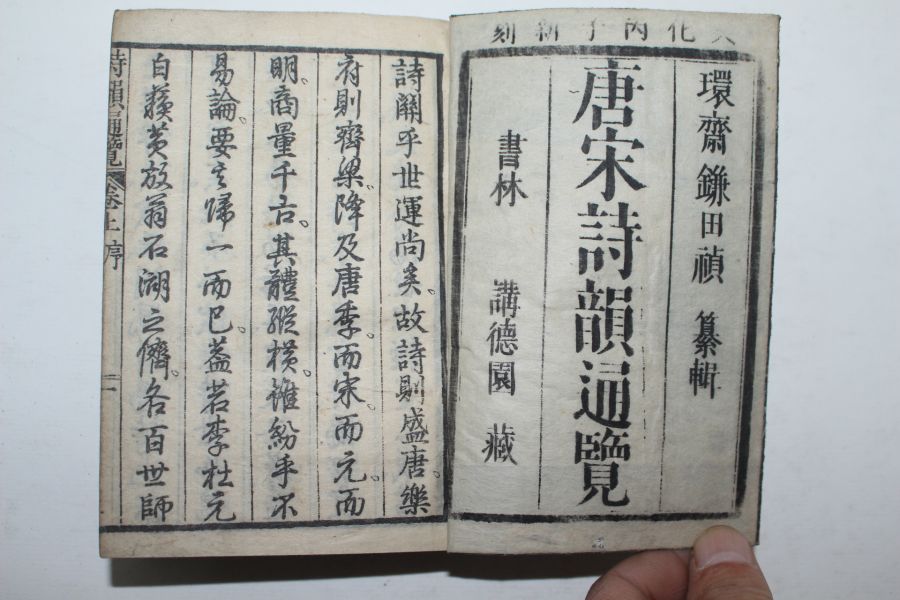 文化丙子新刻
環齋鎌田禎 纂輯
唐宋詩韻通覽
書林 講德園 藏
詩關乎世運尚矣。故詩則盛唐。樂
府則齊梁。降及唐季。而宋。而元。而
明。商量千古。其體縱橫。雖紛乎不
易論。要之歸一而已。蓋若李杜元
白蘇黃放翁石湖之儕。各百世師
詩韻通覽 卷上序 一